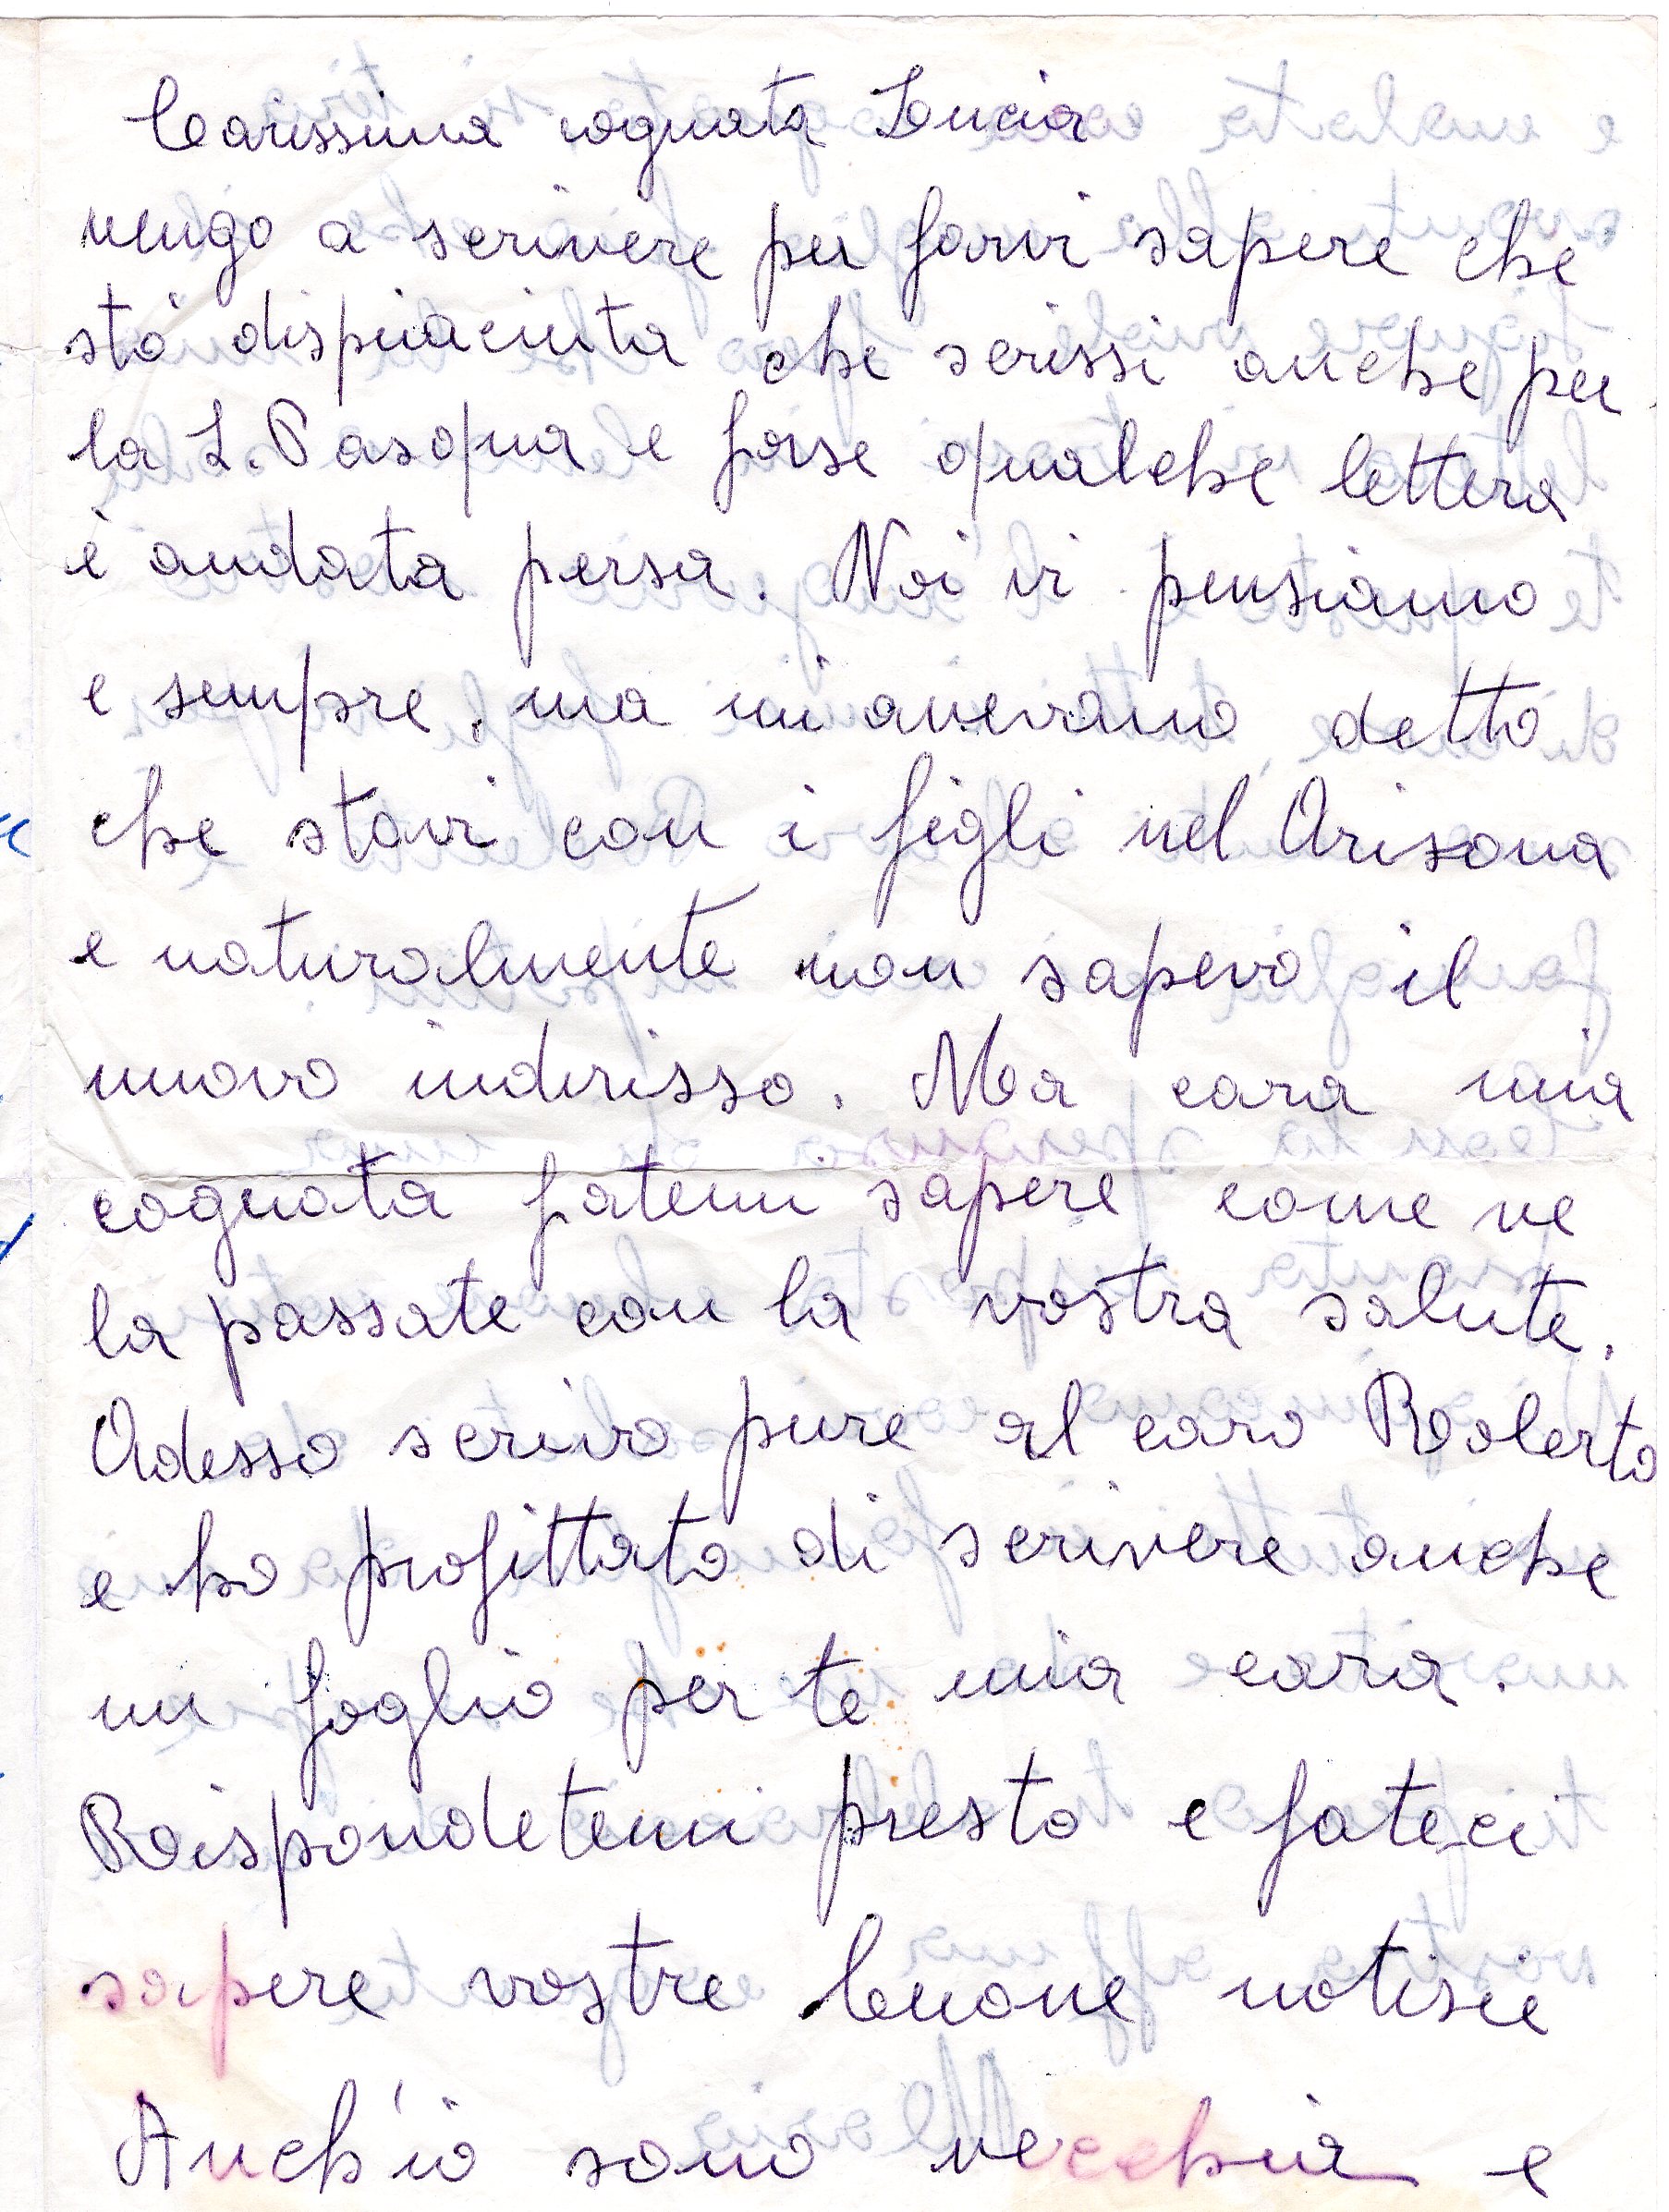 Carissima cognata Lucia
vengo a scrivere per farvi sapere che
stò dispiaciuta che scrissi anche per
la S. Pasqua e forse qualche lettera
è andata persa. Noi vi pensiamo
e sempre, ma mi avevano detto
che stavi con i figli nel Arisona
e naturalmente non sapevo il
nuovo indirisso. Ma cara mia
cognata fatemi sapere come ve
la passate con la vostra salute.
Adesso scrivo pure al caro Roberto
e ho profittato di scrivere anche
un foglio per te mia cara.
Rispondetemi presto e fateci
sapere vostre buone notisie
Anch'io sono vecchia e